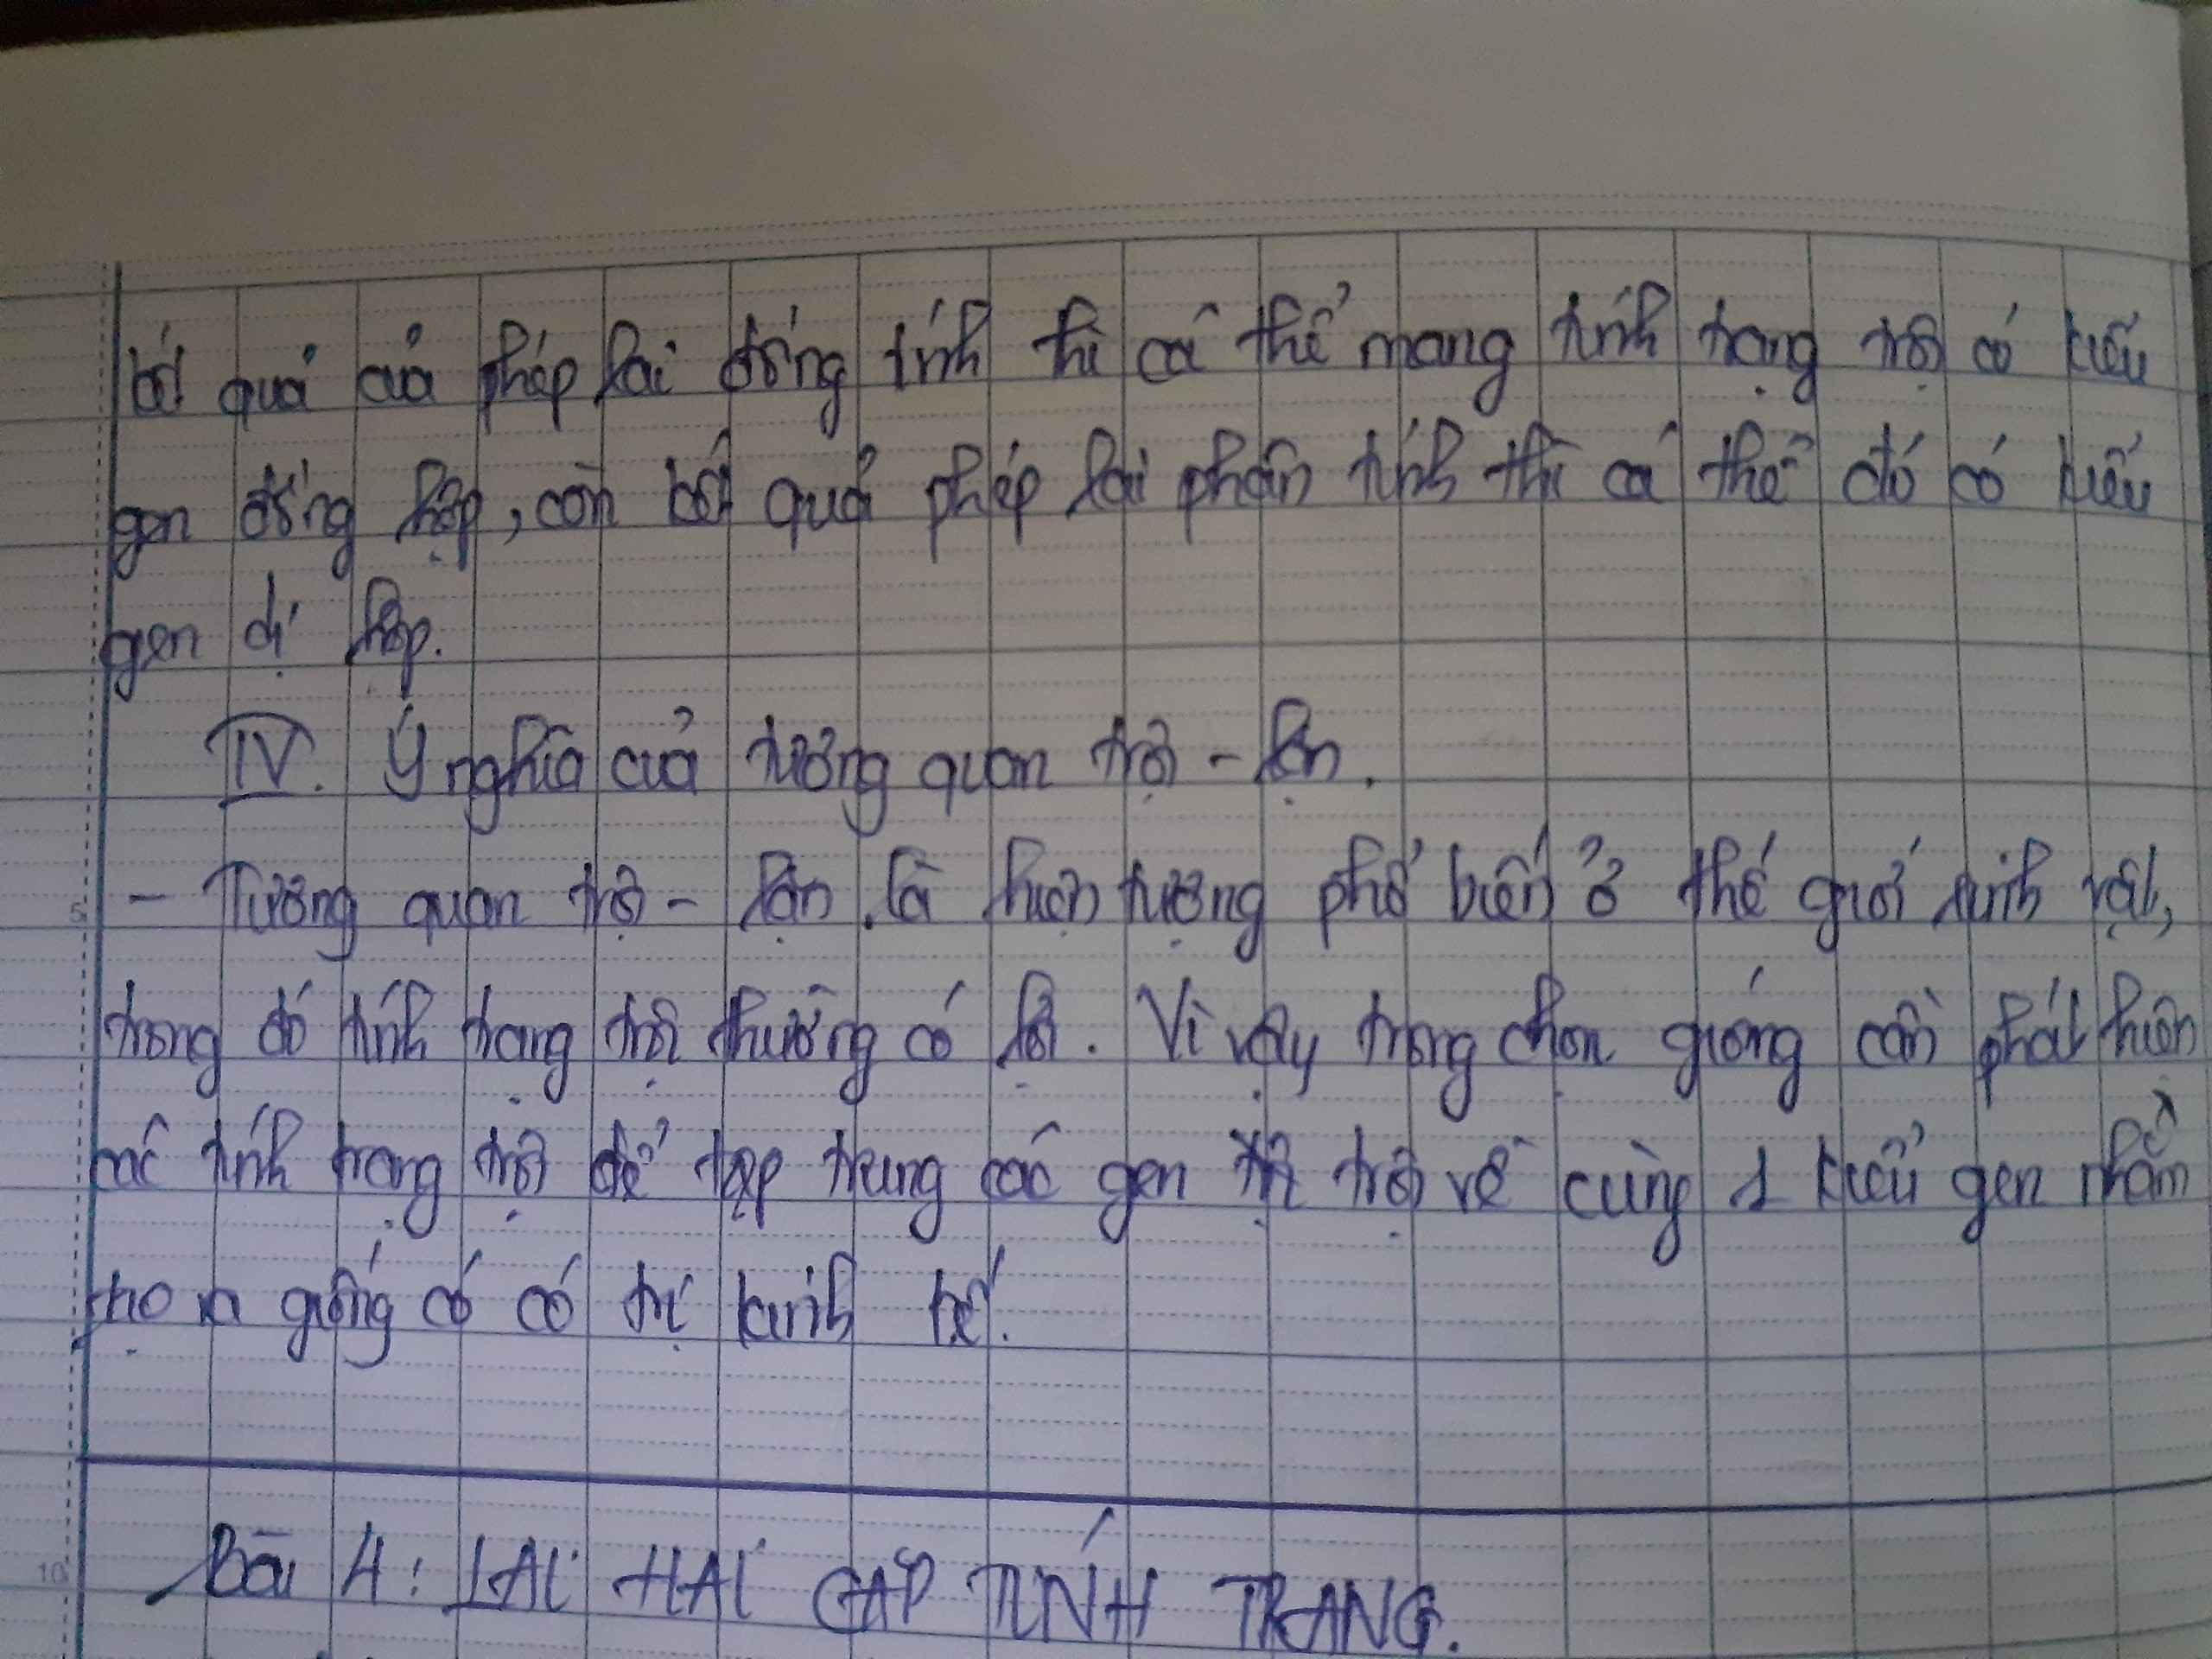 kết quả của phép lai đồng tính thì cá thể mang tính trạng trội có kiểu
gen đồng hợp, còn kết quả phép lai phân tính thì cá thể đó có kiểu
gen dị hợp.
IV. Ý nghĩa của tương quan trội - lặn.
- Tương quan trội - lặn là hiện tượng phổ biến ở thế giới sinh vật,
trong đó tính trạng trội thường có lợi. Vì vậy trong chọn giống cần phát hiện
các tính trạng trội để tập trung các gen trội về cùng 1 kiểu gen nhằm
tạo ra giống có có trị kinh tế.
Bài 4: LAI HAI CẶP TÍNH TRẠNG.
5
10